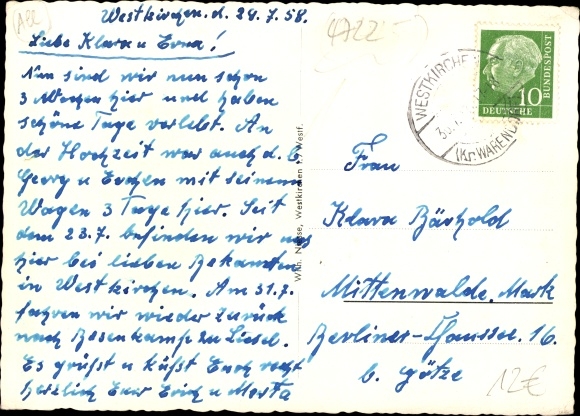 Westkirchen. d. 29.7.58.
Liebe Klara u Erna!
Nun sind wir nun schon
3 Wochen hier und haben
schöne Tage verlebt. An
der Hochzeit war auch d. b.
Georg u Evchen mit seinem
Wagen 3 Tage hier. Seit
dem 23.7. befinden wir uns
hier bei lieben Bekannten
in Westkirchen. Am 31.7.
fahren wir wieder zurück
nach Bosenkamp zu Liesel.
Es grüßt u küßt Euch recht
herzlich Euer Erich u Marta
Wilh. Westkirchen i. Westf.
4722
WESTKIRCHEN
(Kr. WARENDORF)
DEUTSCHE
BUNDESPOST
10
Frau
Klara Bärhold
Mittenwalde. Mark
Berliner-Chaussee. 16.
b. Götze
12€